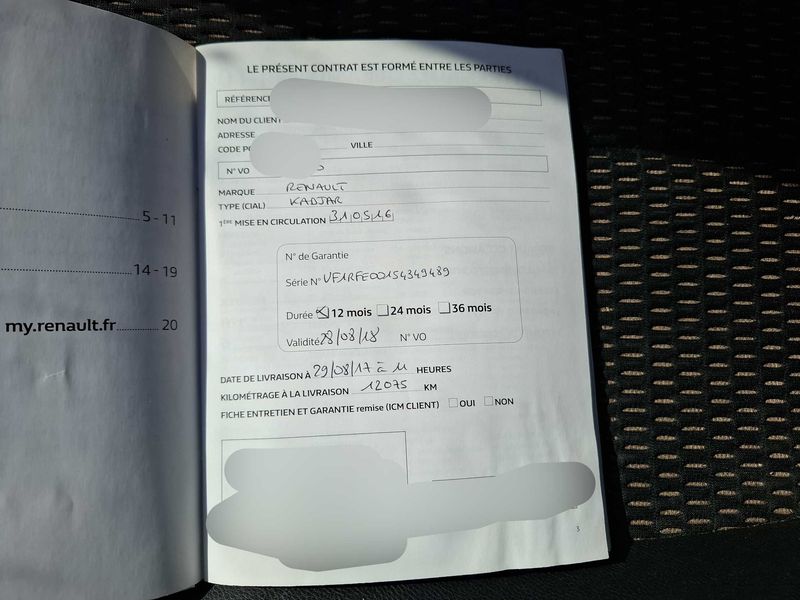 5 - 11
14 - 19
my.renault.fr 20
LE PRÉSENT CONTRAT EST FORMÉ ENTRE LES PARTIES
RÉFÉRENC
NOM DU CLIENT
ADRESSE
CODE PO VILLE
N° VO
MARQUE RENAULT
TYPE (CIAL) KADJAR
1ÈRE MISE EN CIRCULATION 31 05 16
N° de Garantie
Série N° VF1RFE00154349489
Durée 12 mois 24 mois 36 mois
Validité 28/08/18 N° VO
DATE DE LIVRAISON À 29/08/17 à 11 HEURES
KILOMÉTRAGE À LA LIVRAISON 12075 KM
FICHE ENTRETIEN ET GARANTIE remise (ICM CLIENT) OUI NON
3